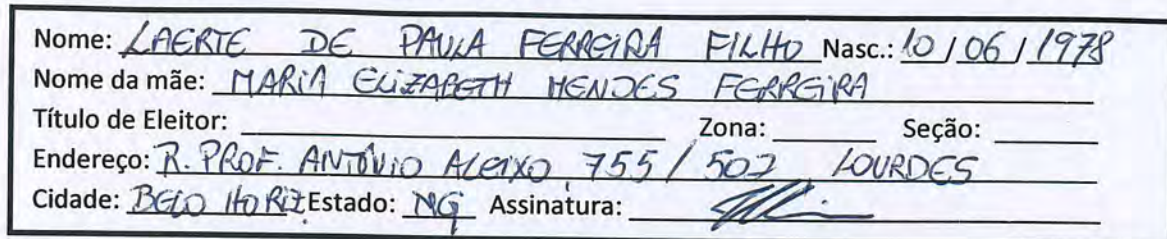 Nome: LAERTE DE PAULA FERREIRA FILHO Nasc.: 10 / 06 / 1978
Nome da mãe: MARIA ELIZABETH MENDES FERREIRA
Título de Eleitor: Zona: Seção:
Endereço: R. PROF. ANTÔNIO ALEIXO, 755 / 502 LOURDES
Cidade: BELO HORIZ. Estado: MG Assinatura: